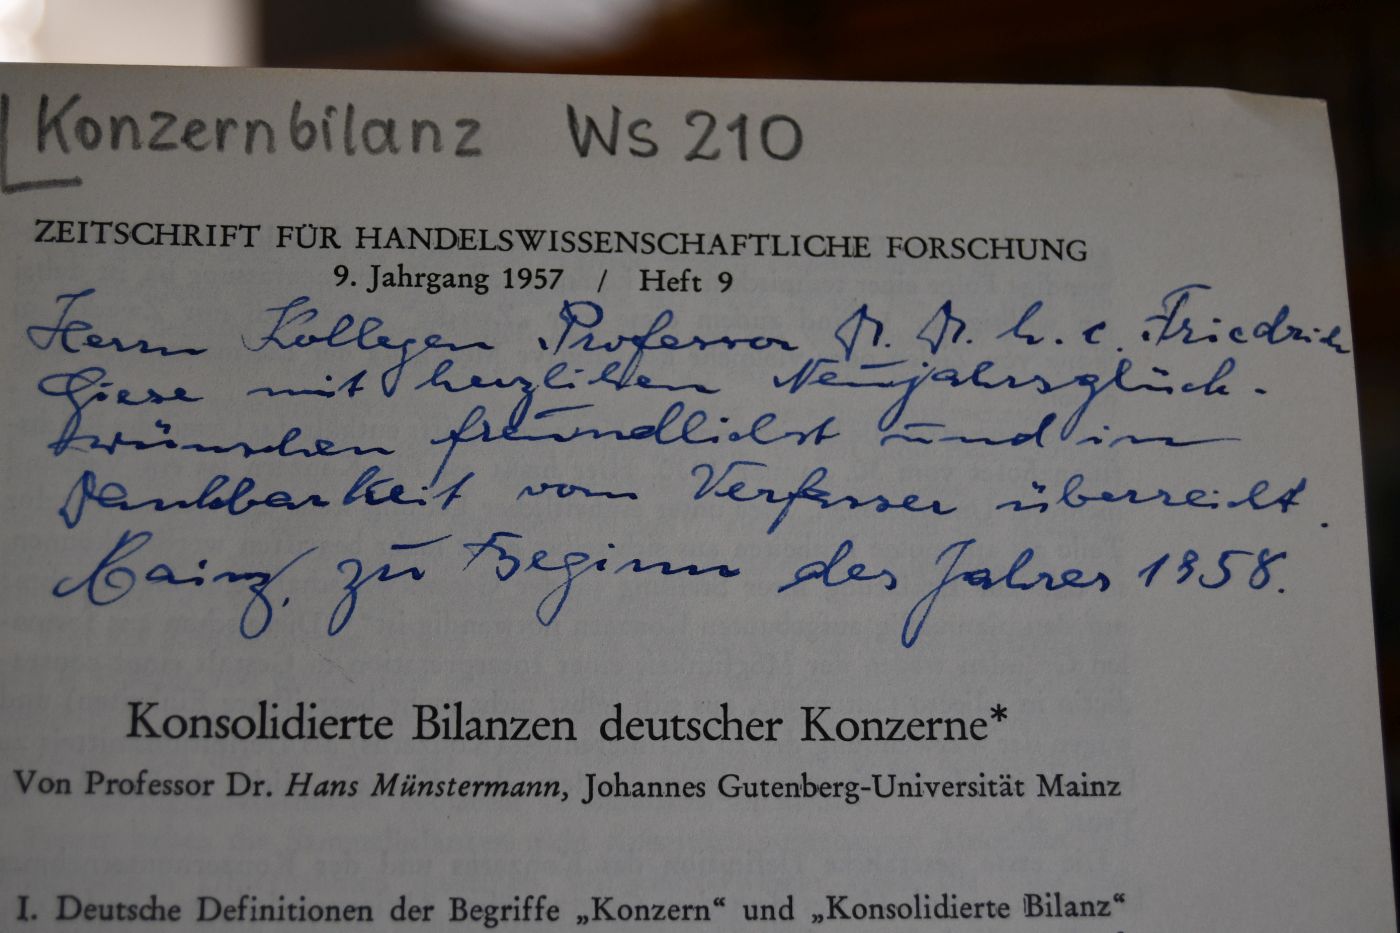 Konzernbilanz Ws 210
ZEITSCHRIFT FÜR HANDELSWISSENSCHAFTLICHE FORSCHUNG
9. Jahrgang 1957 / Heft 9
Herrn Kollegen Professor Dr. Dr. h. c. Friedrich
Giese mit herzlichen Neujahrsglück-
wünschen freundlichst und in
Dankbarkeit vom Verfasser überreicht.
Mainz, zu Beginn des Jahres 1958.
Konsolidierte Bilanzen deutscher Konzerne*
Von Professor Dr. Hans Münstermann, Johannes Gutenberg-Universität Mainz
I. Deutsche Definitionen der Begriffe „Konzern“ und „Konsolidierte Bilanz“